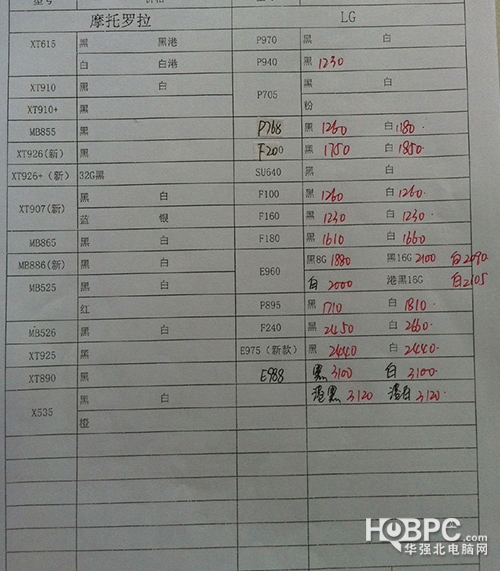 型号 价格
摩托罗拉 LG
XT615 黑 黑港 P970 黑 白
白 白港 P940 黑 1230
XT910 黑 白 P705 黑 白
XT910+ 黑 粉
MB855 黑 P768 黑 1260 白 1180.
XT926(新) 黑 F200 黑 1750 白 1850.
XT926+(新) 32G黑 SU640 黑
XT907(新) 黑 白 F100 黑 1260 白 1260.
蓝 银 F160 黑 1230 白 1230.
MB865 黑 白 F180 黑 1610 白 1660
MB886(新) 黑 白 E960 黑8G 1880 黑16G 2100 白2090
MB525 黑 白 白 2000 港黑16G 白2105
红 P895 黑 1710 白 1810.
MB526 黑 白 F240 黑 2450 白 2660.
XT925 黑 E975(新款) 黑 2440 白 2440.
XT890 黑 E988 黑 3100 白 3100.
X535 黑 白 港黑 3120 港白 3120.
橙
HQBPC.com
华强北电脑网